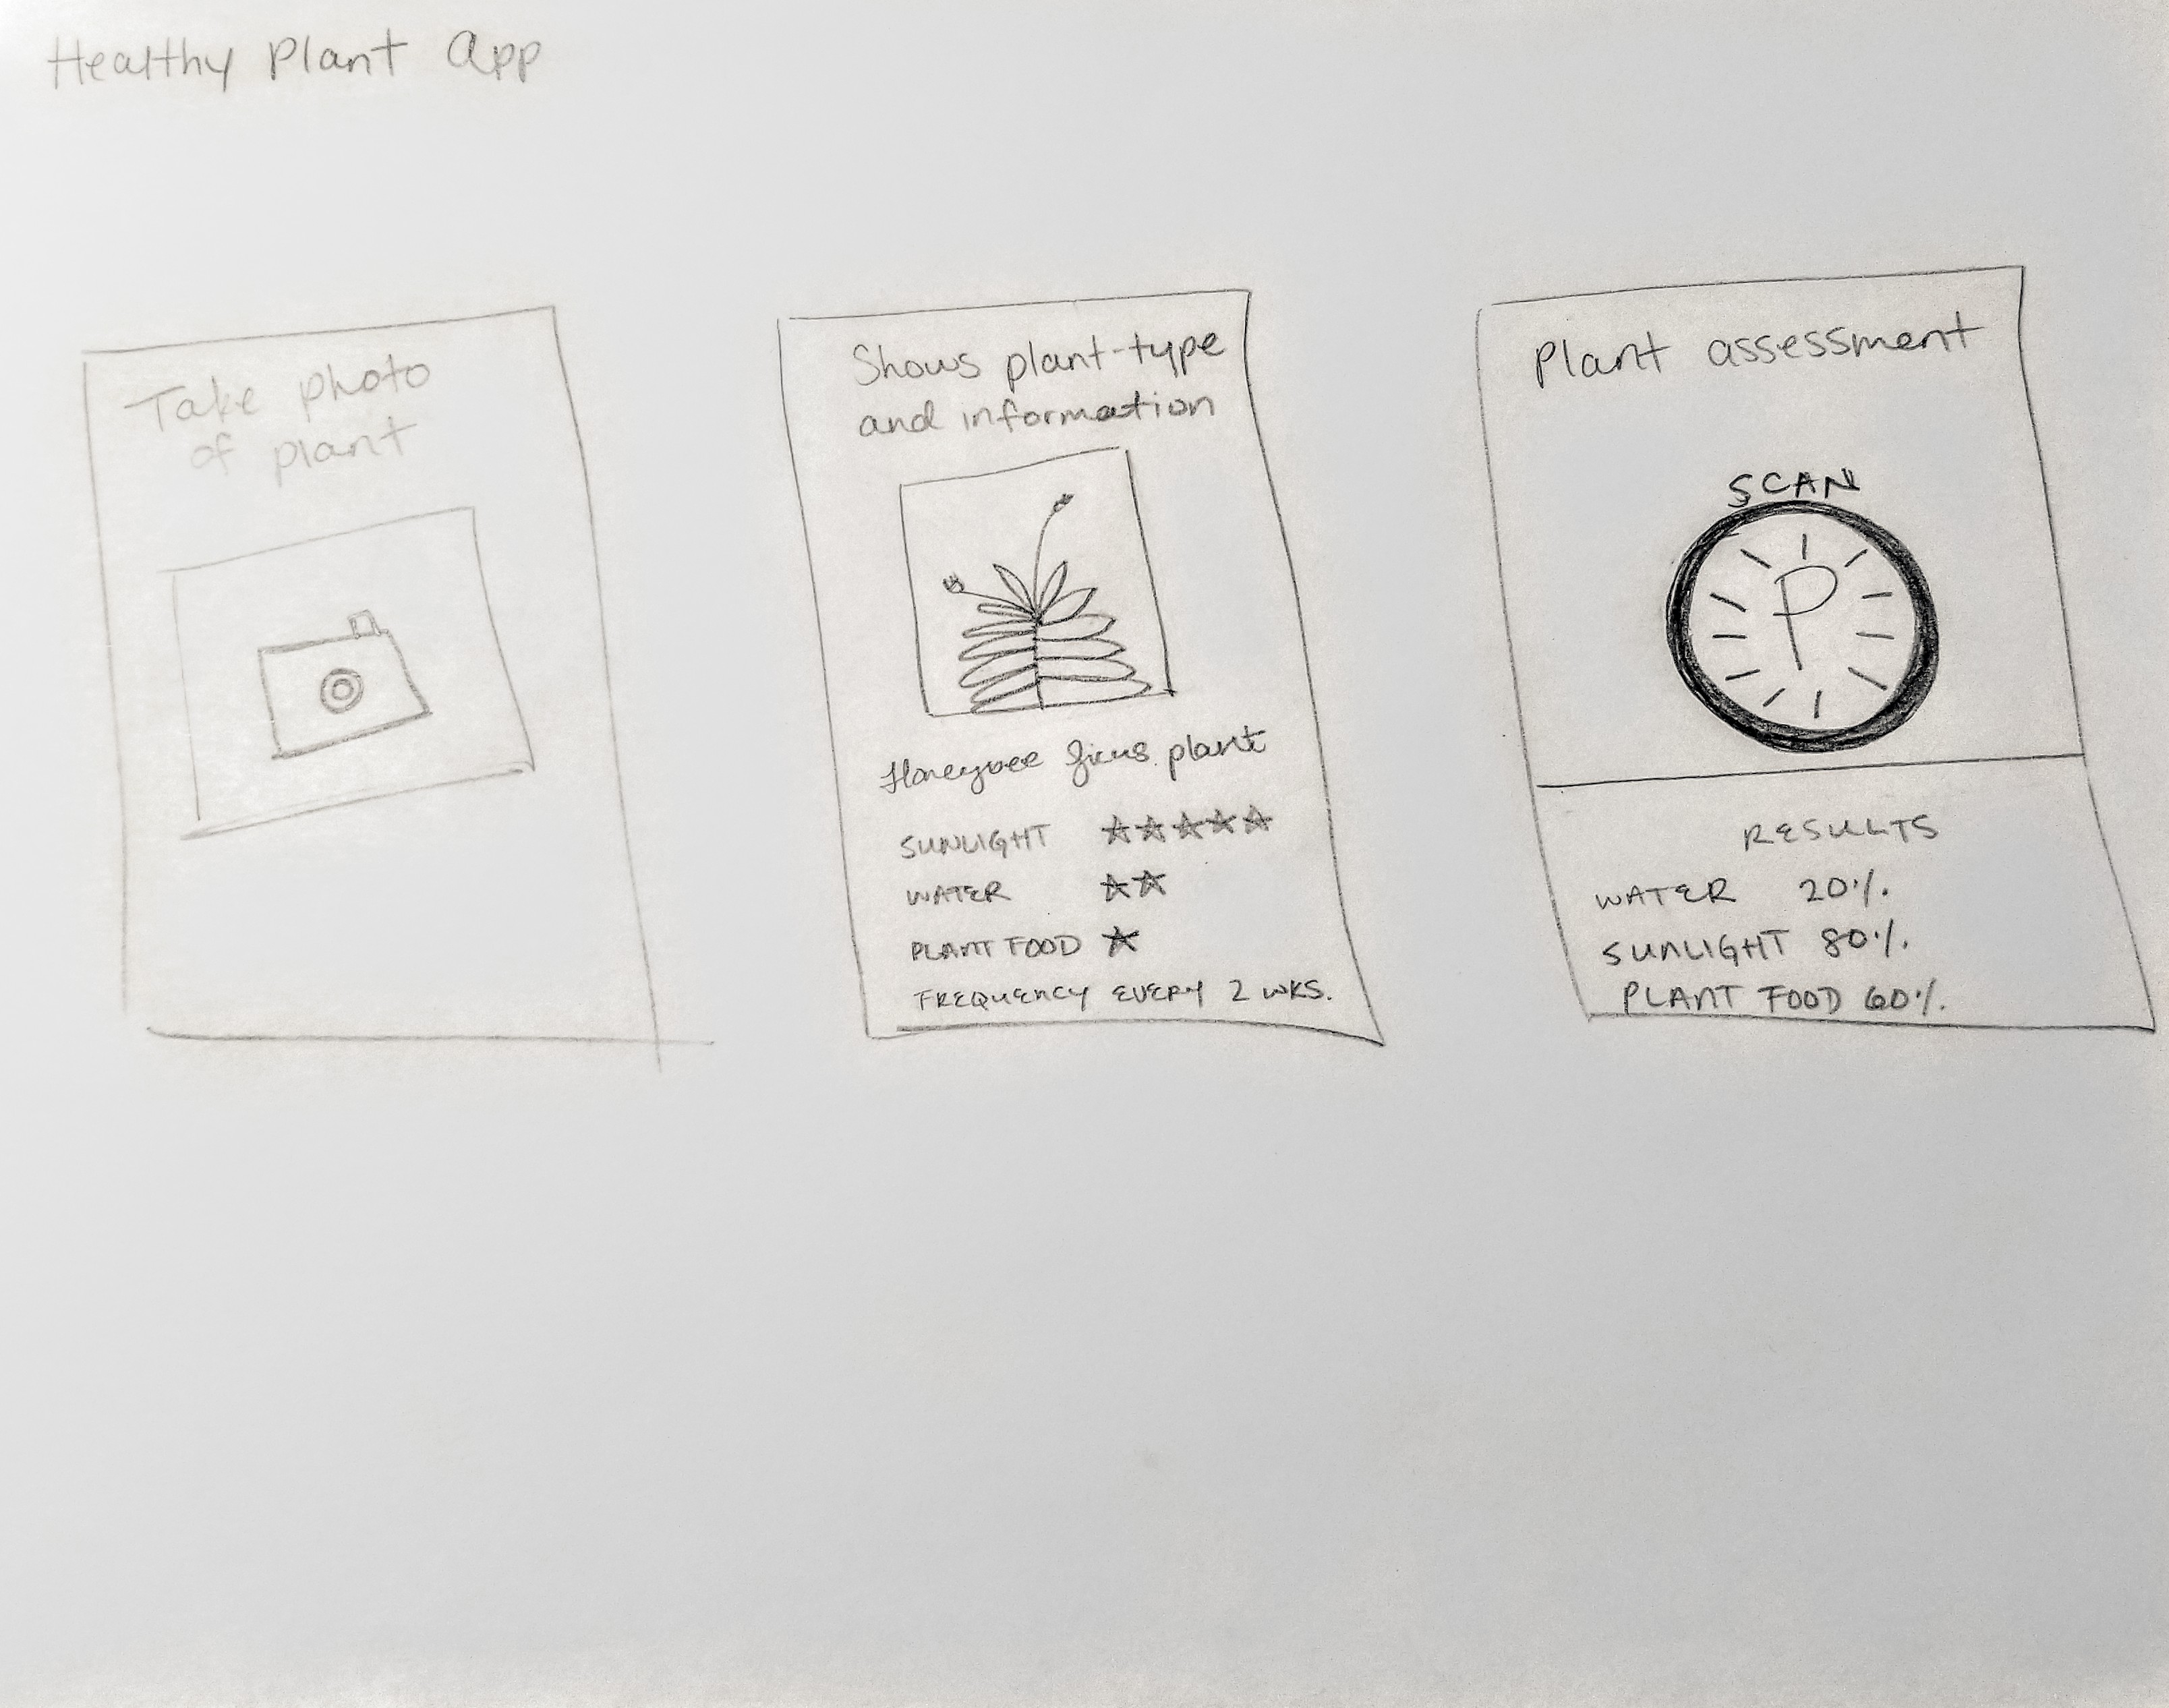 Healthy Plant App
Take photo
of plant
Shows plant-type
and information
Honeybee ficus plant
SUNLIGHT ★★★★★
WATER ★★
PLANT FOOD ★
FREQUENCY EVERY 2 WKS.
Plant assessment
SCAN
P
RESULTS
WATER 20%.
SUNLIGHT 80%.
PLANT FOOD 60%.